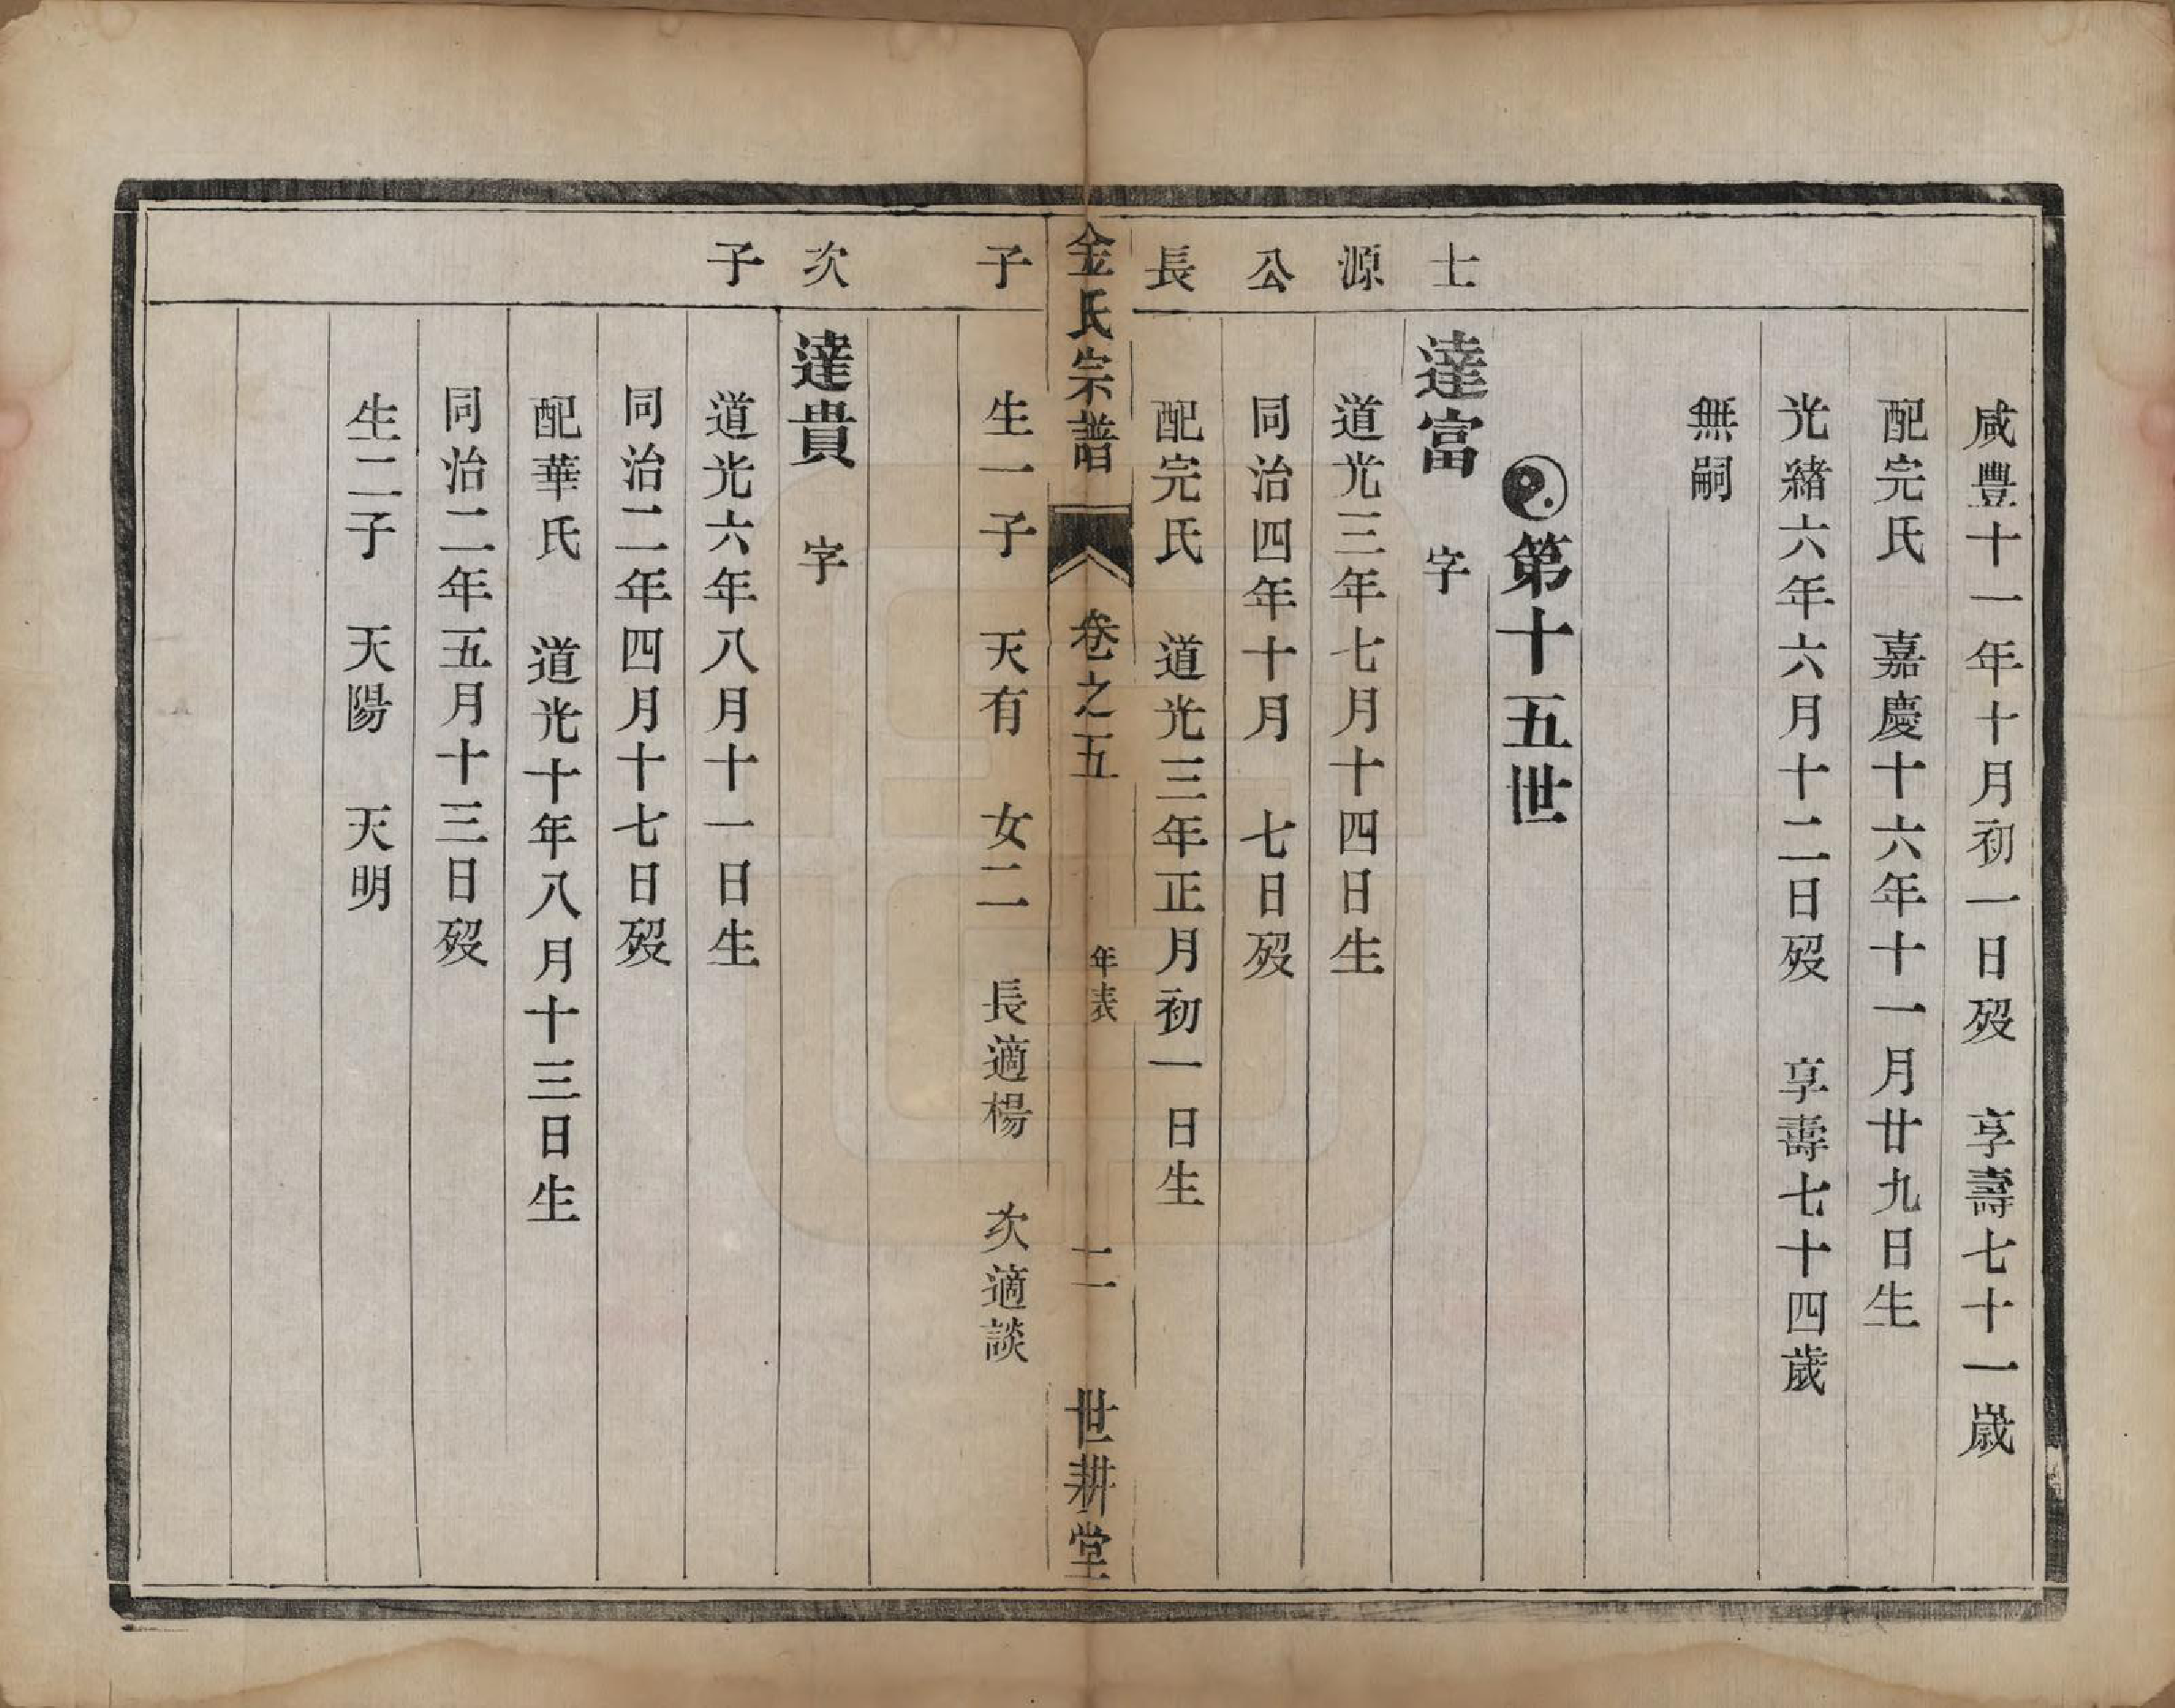 咸豐十一年十月初一日歿　享壽七十一歲
配完氏　嘉慶十六年十一月廿九日生
光緒六年六月十二日歿　享壽七十四歲
無嗣
第十五世
士
達富　字
源
道光三年七月十四日生
公
同治四年十月　七日歿
長
配完氏　道光三年正月初一日生
金氏宗譜　卷之五　年表　二　世耕堂
子
生一子　天有　女二　長適楊　次適談
次
達貴　字
子
道光六年八月十一日生
同治二年四月十七日歿
配華氏　道光十年八月十三日生
同治二年五月十三日歿
生二子　天陽　天明